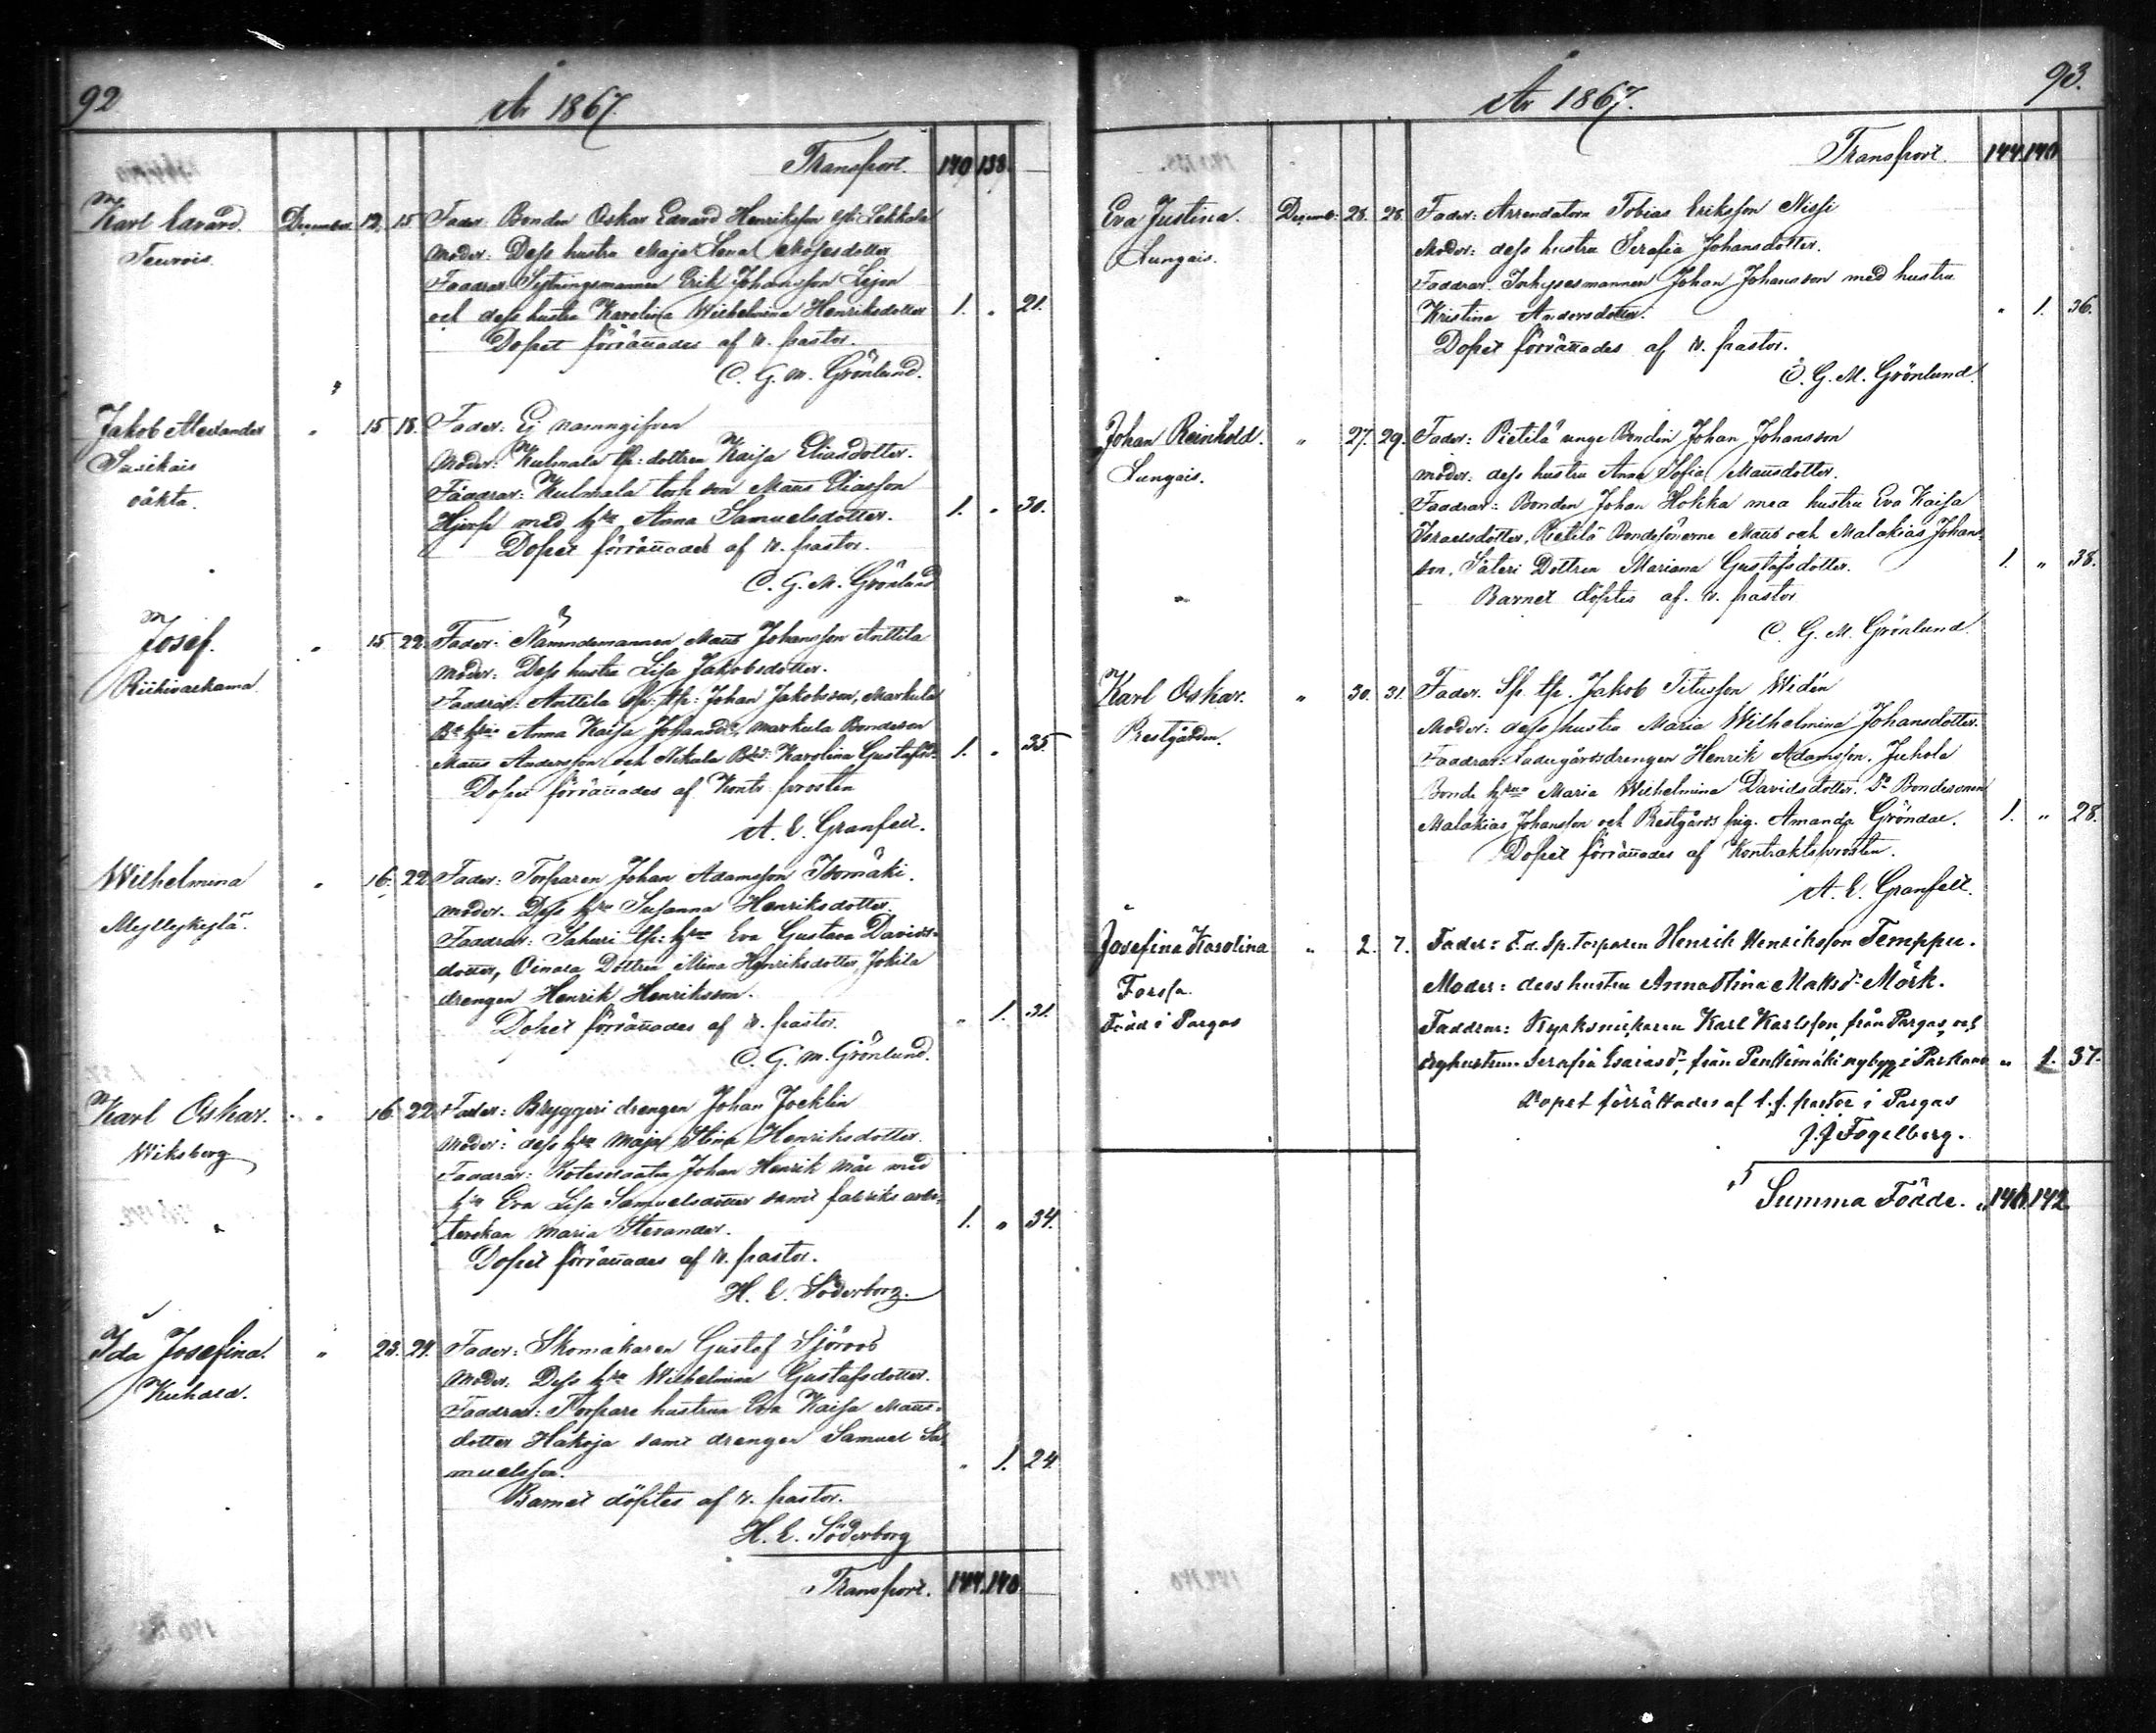 92
År 1867.
Transport. 140 138.
Karl Edvard. December. 12. 15. Fader: Bonden Oskar Edvard Henriksson Lekkala
Teurois. Moder: Dess hustru Maja Lena Mosesdotter
Faddrar: Erik Johansson Leijon
och dess hustru Karolina Wilhelmina Henriksdotter 1. " 21.
Dopet förrättades af v. pastor.
C. G. M. Grönlund.
Jakob Alexander " 15 18. Fader: Ej namngifven
Susikais Moder: Kulmala tp: dottren Kaisa Eliasdotter.
oäkta. Faddrar: Kulmala torp son Matts Eliasson
Hjorth med h:ru Anna Samuelsdotter. 1. " 30.
Dopet förrättades af v. pastor.
C. G. M. Grönlund
Josef. " 15 22. Fader: Nämndemannen Matts Johansson Anttila
Riihivalkama Moder: Dess hustru Lisa Jakobsdotter.
Faddrar: Anttila Sp: tp: Johan Jakobsson, Markula
B:de h:ru Anna Kaisa Johansd:r, Markula Bondeson
Matts Andersson och Nikula Karolina Gustafsd:r 1. " 35.
Dopet förrättades af Kontr: prosten
A. E. Granfelt.
Wilhelmina " 16. 22. Fader: Torparen Johan Adamsson Isomäki.
Myllykylä. Moder. Dess h:ru Susanna Henriksdotter.
Faddrar: Sahuri tp: h:run Eva Gustava Davids-
dotter, Oinala Dottren Mina Henriksdotter, Jokila
drengen Henrik Henriksson. " 1. 31.
Dopet förrättades af v. pastor.
C. G. M. Grönlund.
Karl Oskar. " 16 22. Fader: Bryggeri drengen Johan Jocklin
Wiksberg Moder: dess h:ru Maja Stina Henriksdotter.
Faddrar: Johan Henrik med
h:ru Eva Lisa Samuelsdotter samt fabriks arbe-
terskan Maria Sterander. 1. " 34.
Dopet förrättades af v. pastor.
H. E. Söderborg.
Ida Josefina. " 23. 24. Fader: Skomakaren Gustaf Sjöroos
Kuhala. Moder: Dess h:ru Wilhelmina Gustafsdotter.
Faddrar: Torpare hustrun Eva Kaisa Matts-
dotter Hakoja samt drengen Samuel Sa-
muelsson. " 1. 24.
Barnet döptes af v. pastor.
H. E. Söderborg
Transport. 144. 140.
93.
År 1867.
Transport. 144. 140
Eva Justina. Decemb: 28. 28. Fader: Arrendatorn Tobias Eriksson Nissi
Lungais. Moder: dess hustru Serafia Johansdotter.
Faddrar: Inhysesmannen Johan Johansson med hustru
Kristina Andersdotter. " 1. 36.
Dopet förrättades af v. pastor.
C. G. M. Grönlund.
Johan Reinhold. " 27. 29. Fader: Pietilä unge Bonden Johan Johansson
Lungais. Moder: dess hustru Anna Sofia Mattsdotter.
Faddrar: Bonden Johan Hokka med hustru Eva Kaisa
Israelsdotter, Pietilä Bondesönerne Matts och Malakias Johans-
son, Säteri Dottren Mariana Gustafsdotter. 1. " 38.
Barnet döptes af. v. pastor
C. G. M. Grönlund.
Karl Oskar. " 30. 31. Fader. Sp. tp. Jakob Titusson Widén
Prestgården. Moder: dess hustru Maria Wilhelmina Johansdotter.
Faddrar: Ladugårdsdrengen Henrik Adamsson. Juhola
Bonde h:run Maria Wilhelmina Davidsdotter. D:o Bondesonen
Malakias Johansson och Prestgårds pig. Amanda Gröndal. 1. " 28.
Dopet förrättades af Kontraktsprosten.
A. E. Granfelt.
Josefina Karolina " 2. 7. Fader: F.d. Sp. torparen Henrik Henriksson Temppu.
Forssa. Moder: dess hustru Anna Stina Mattsd:r Mörk.
Född i Pargas Faddrar: Karl Karlsson från Pargas, och
Serafia Esaiasd:r från Penttimäki nybygg i Parkano " 1. 37.
Dopet förrättades af t.f. pastor i Pargas
J. J. Fogelberg.
Summa Födde. 146. 142.